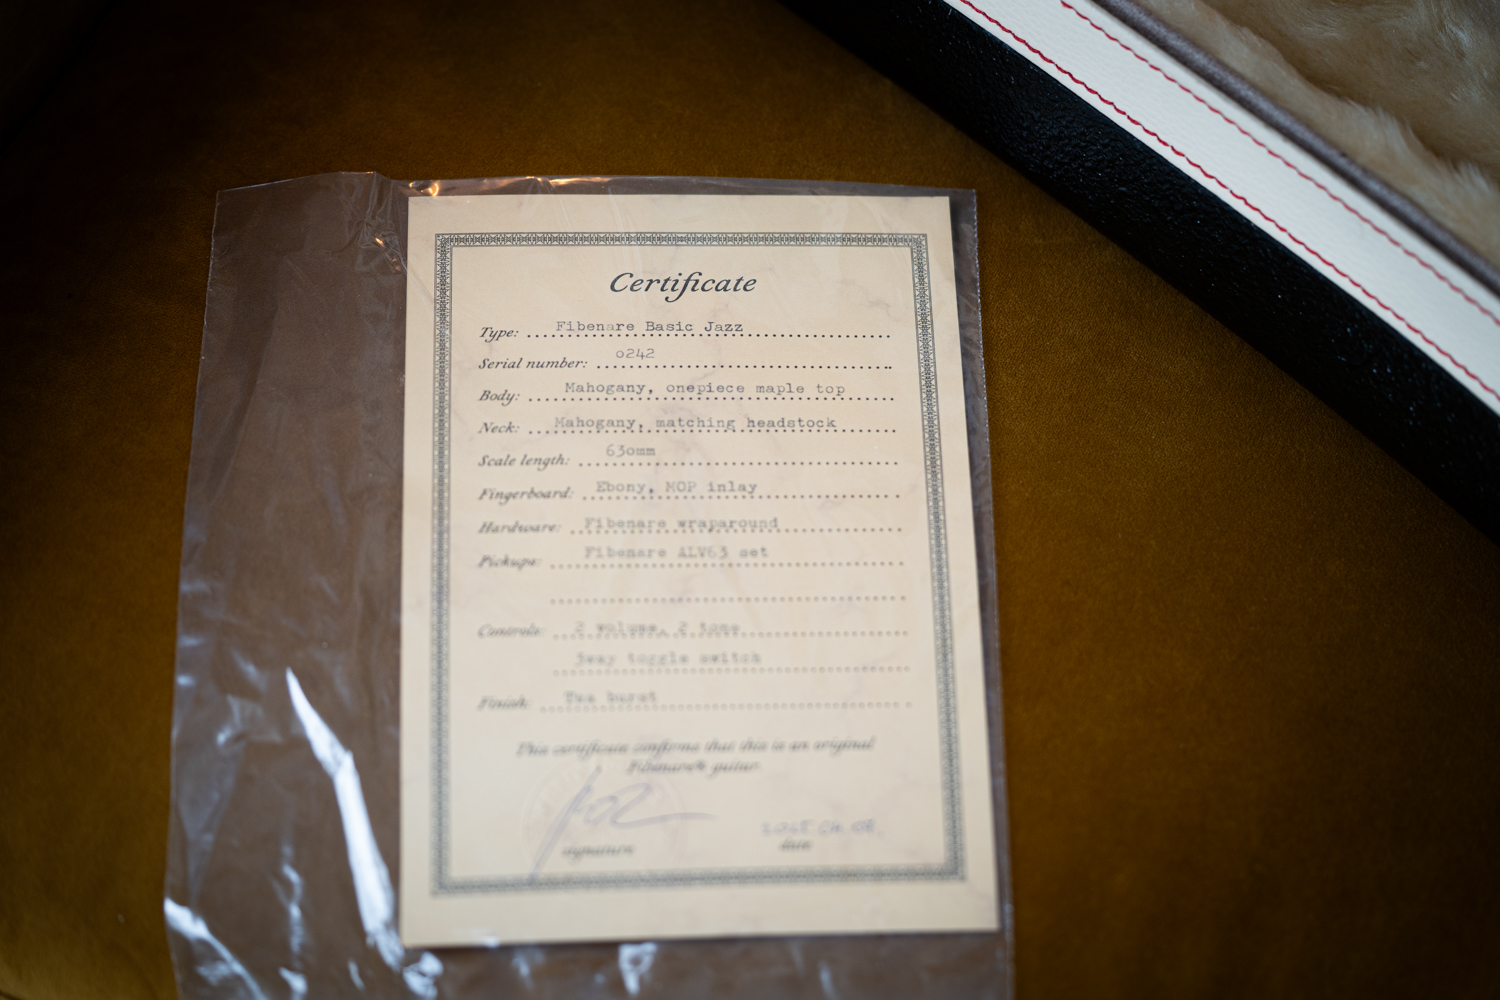 Certificate
Type: Fibenare Basic Jazz
Serial number: 0242
Body: Mahogany, onepiece maple top
Neck: Mahogany, matching headstock
Scale length: 630mm
Fingerboard: Ebony, MOP inlay
Hardware: Fibenare wraparound
Pickups: Fibenare ALV63 set
Controls: 2 volume, 2 tone
3way toggle switch
Finish: Tea burst
This certificate confirms that this is an original
Fibenare® guitar.
signature
date